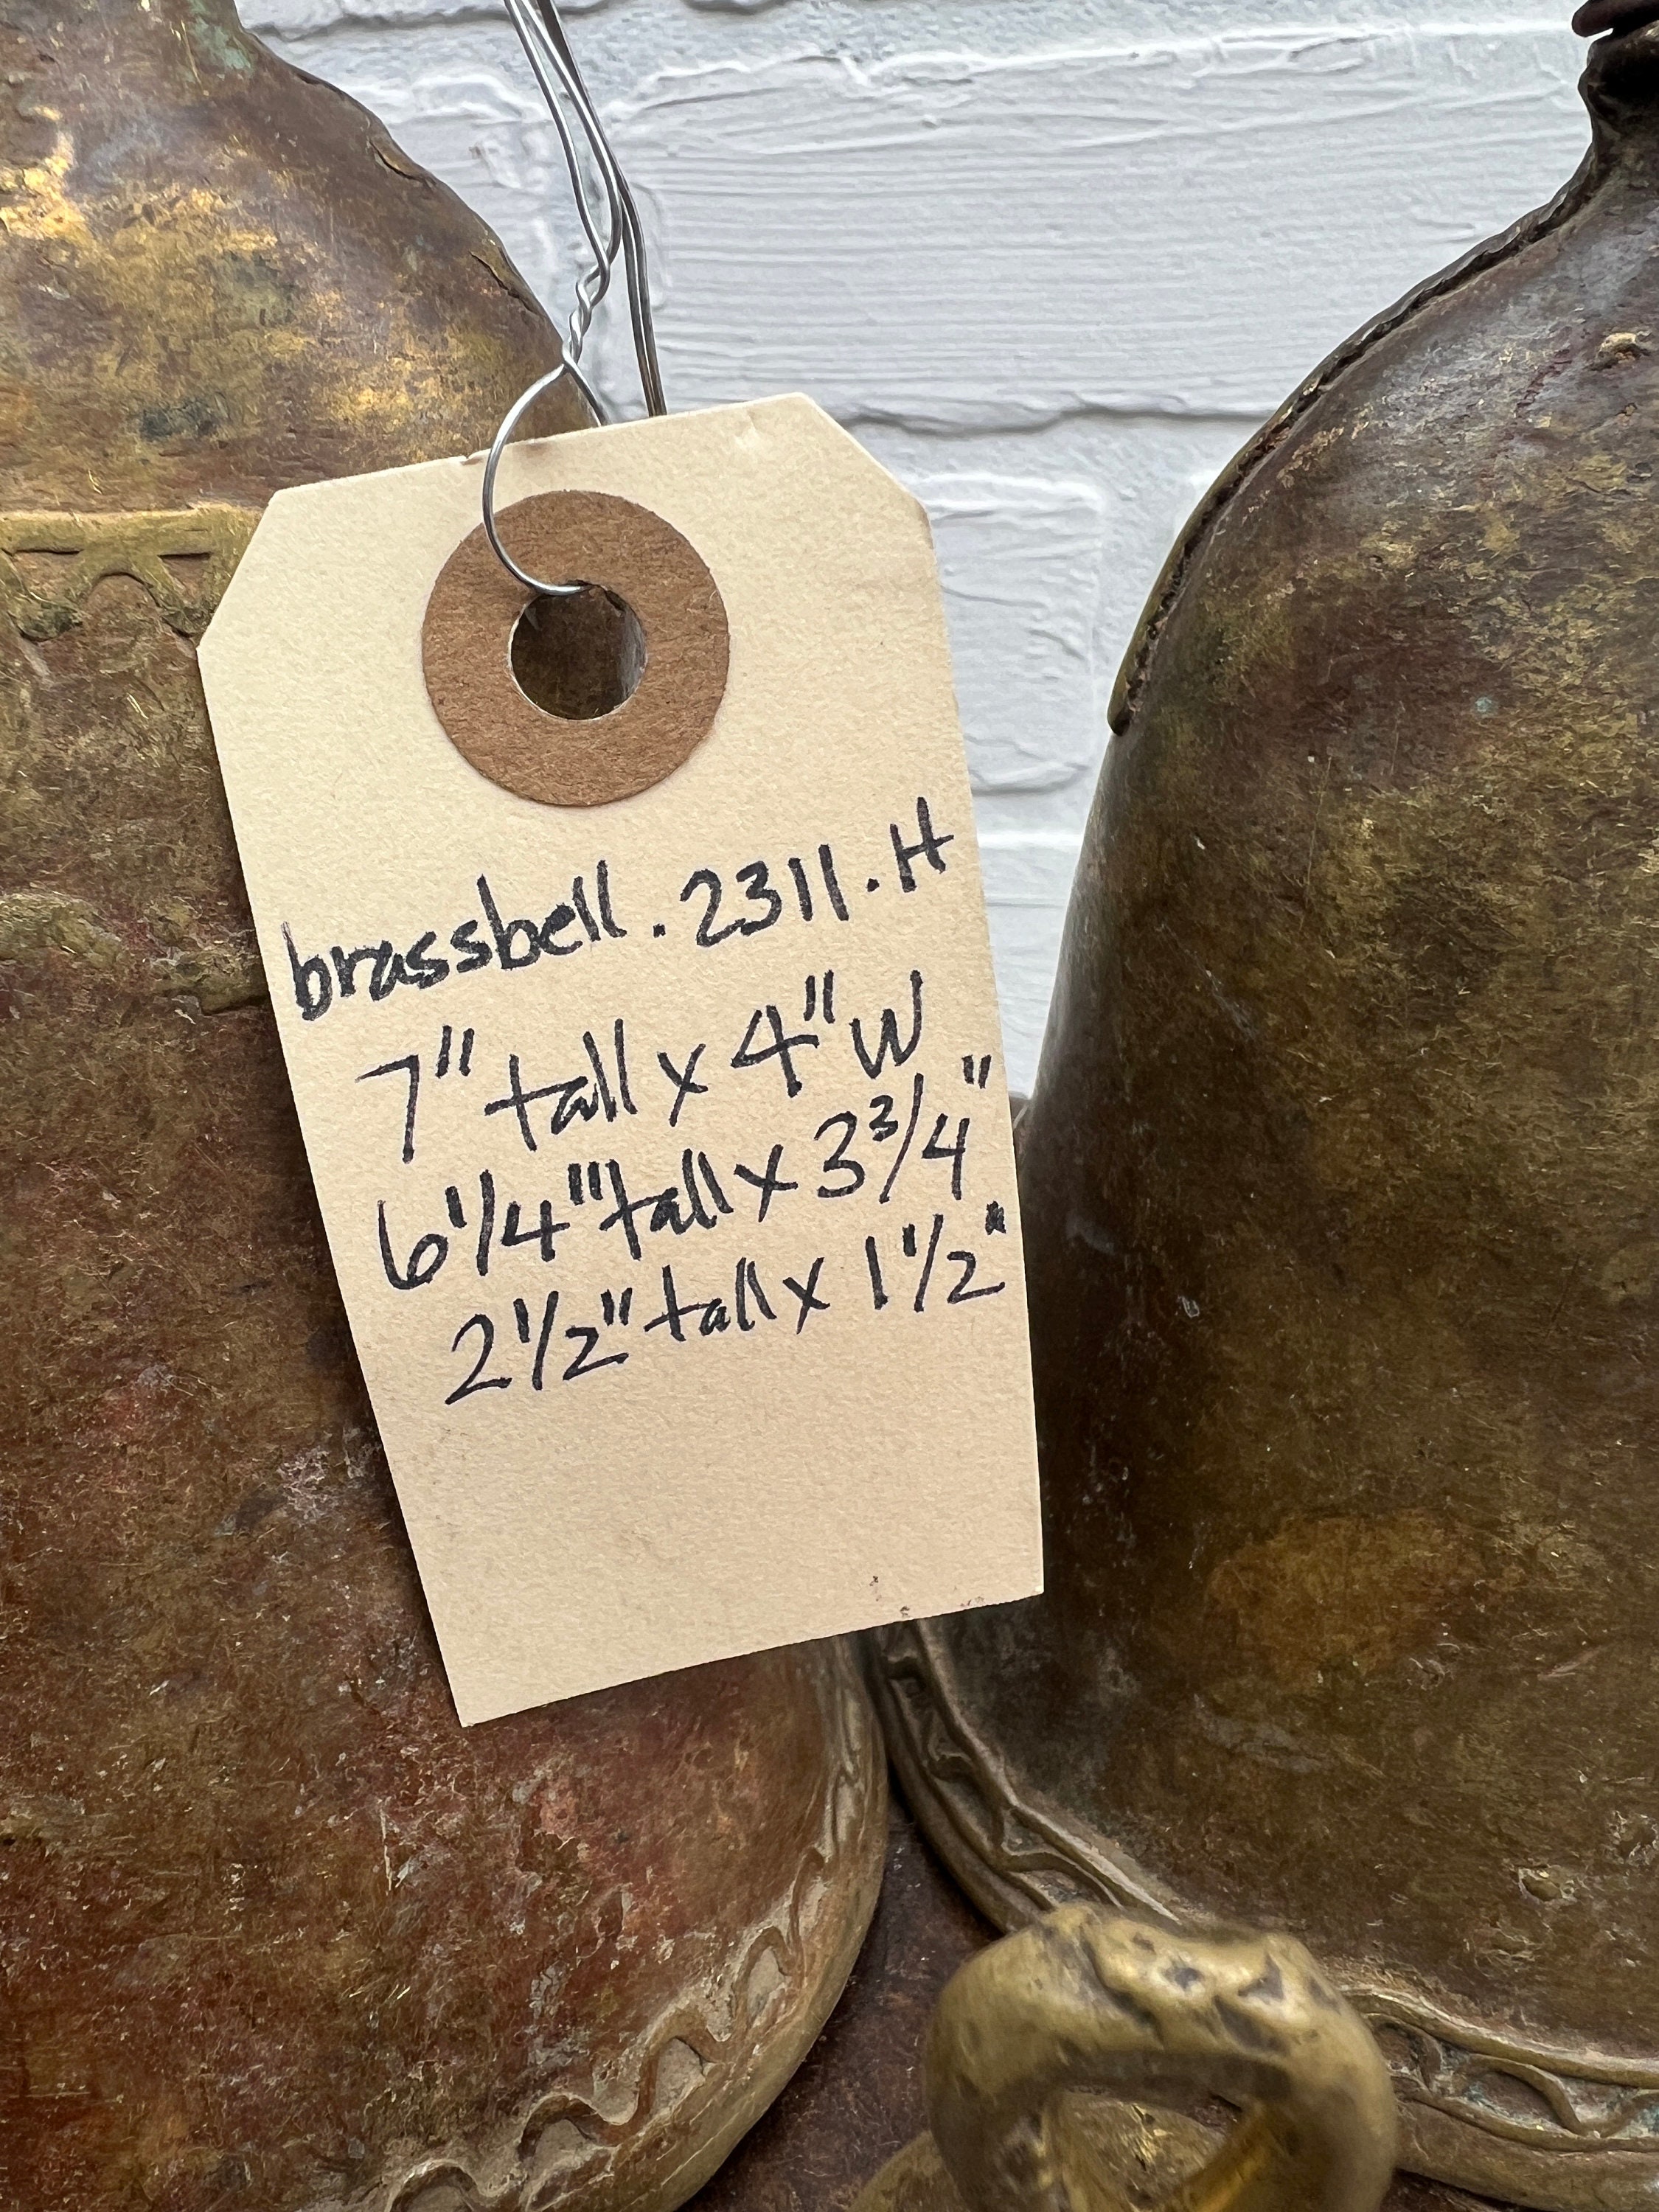 brassbell.2311.H
7" tall x 4" W
6 1/4" tall x 3 3/4"
2 1/2" tall x 1 1/2"